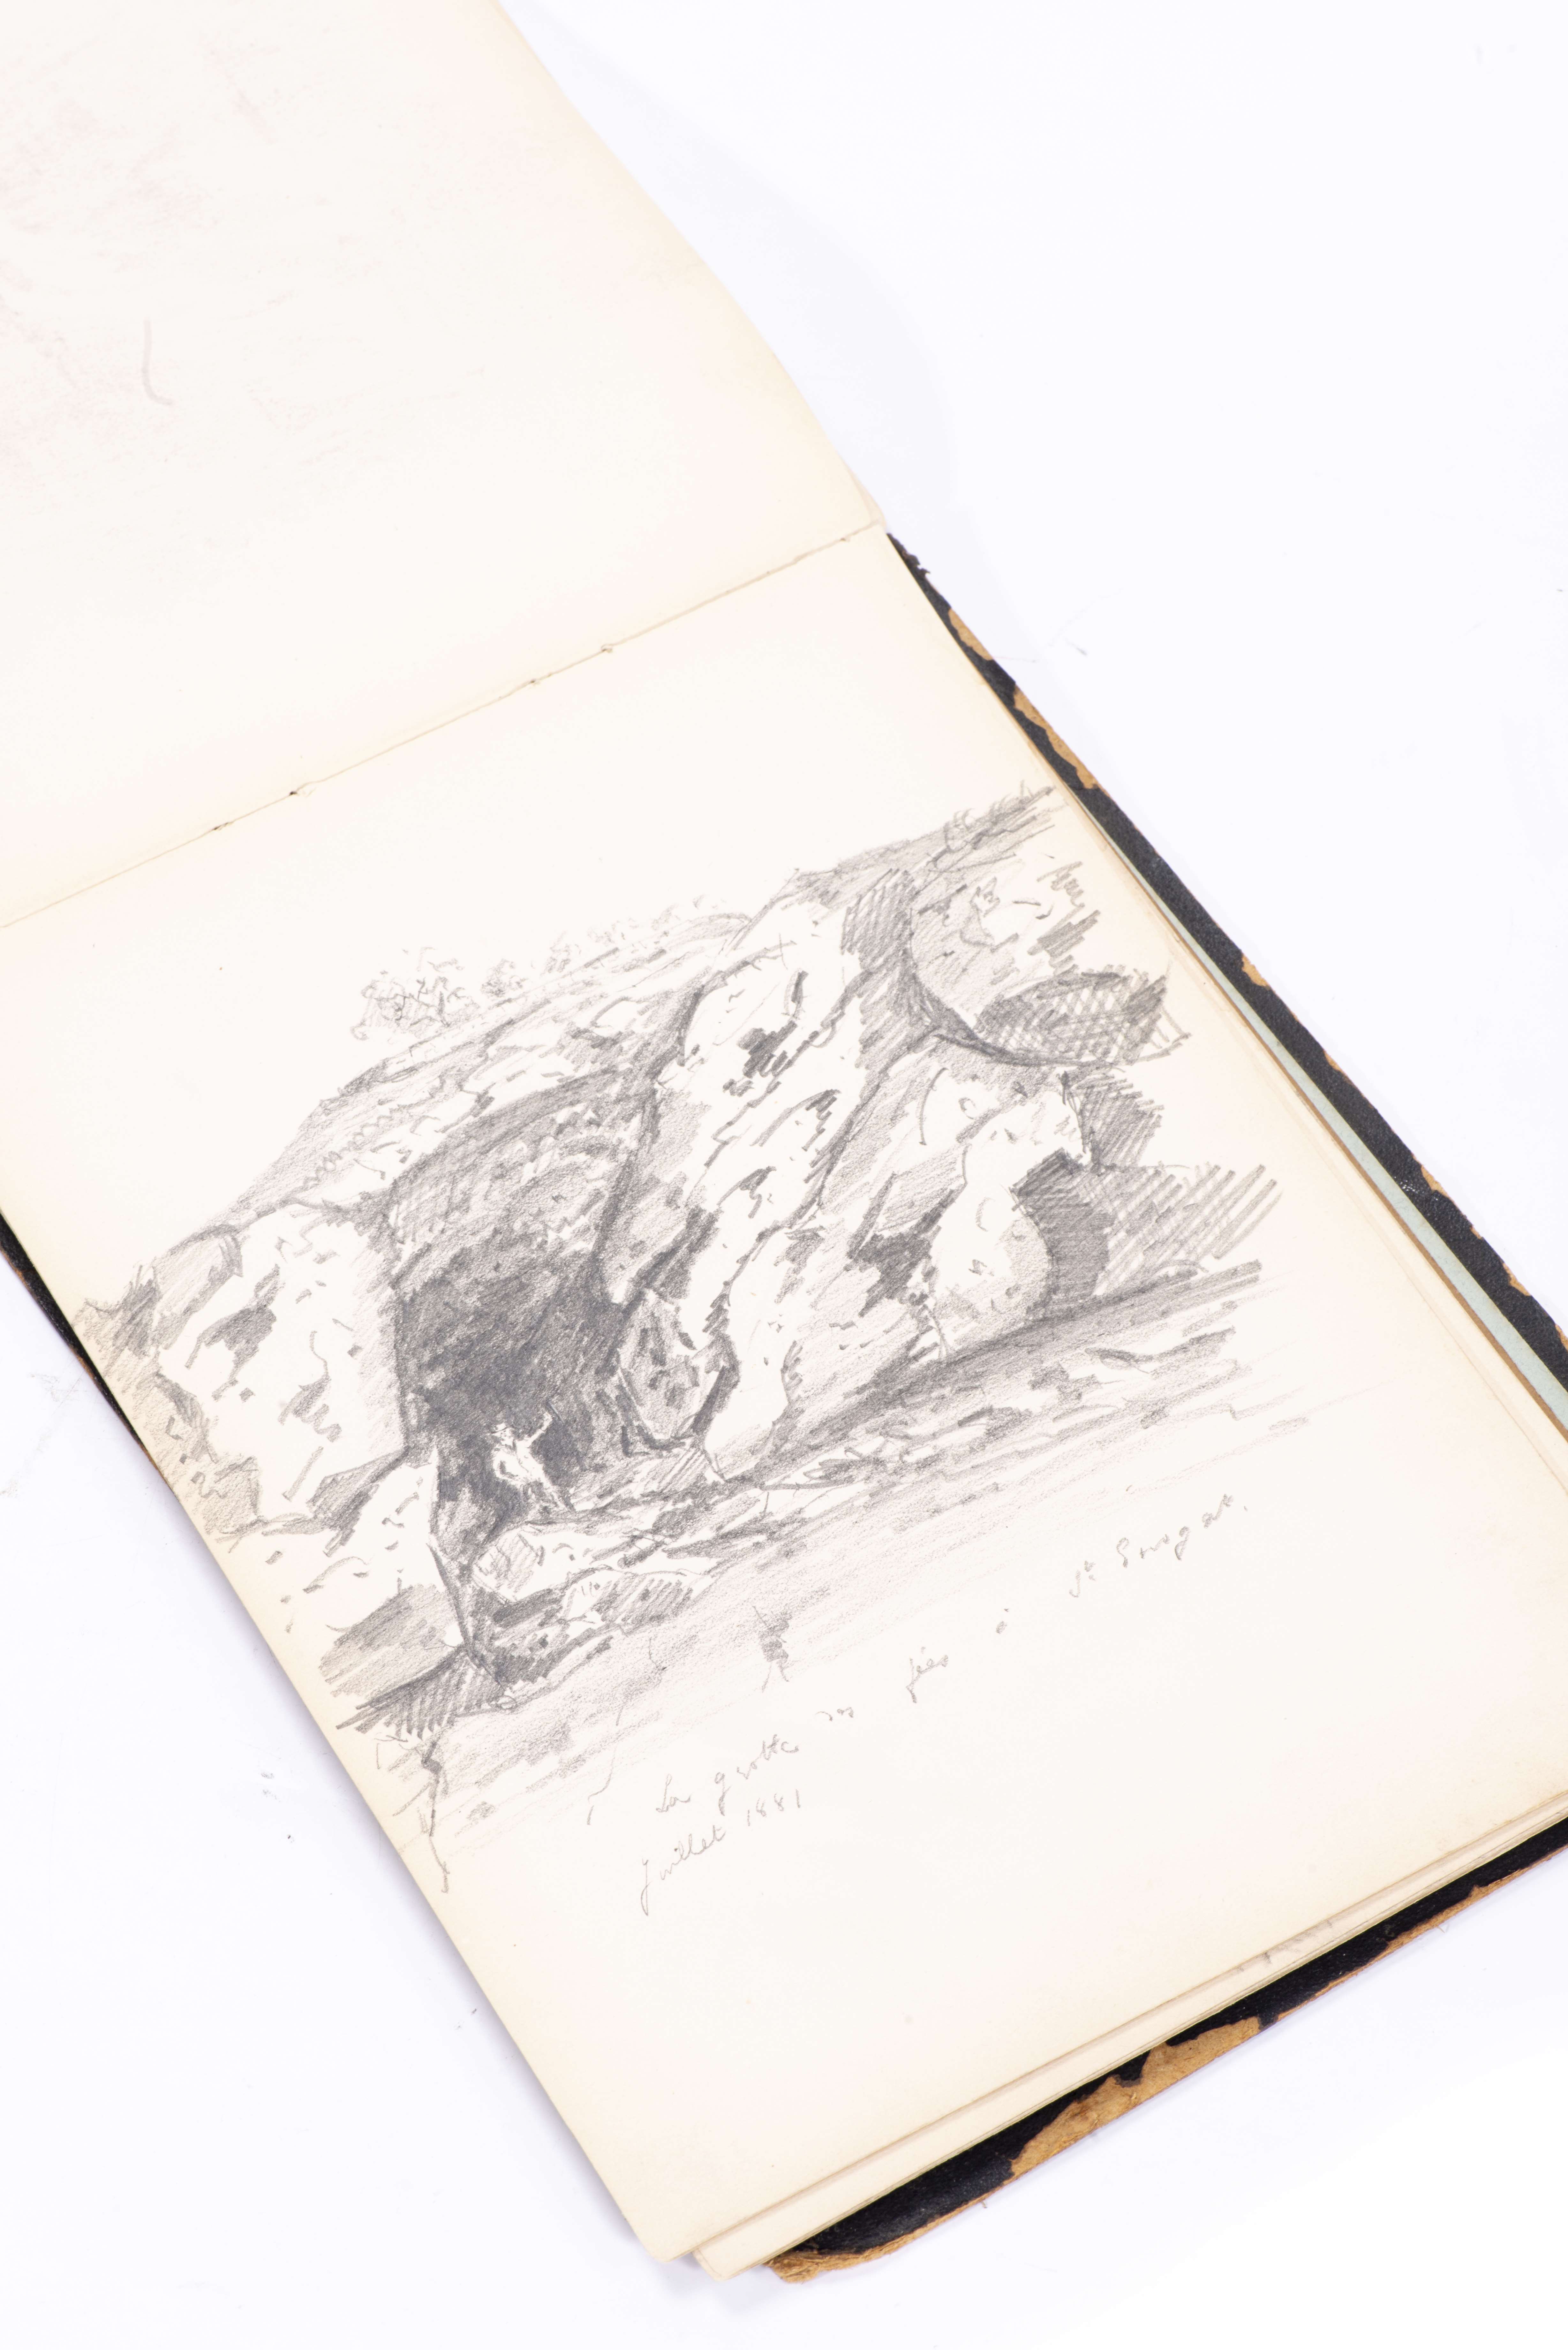 La grotte des fées à St Enogat.
Juillet 1881